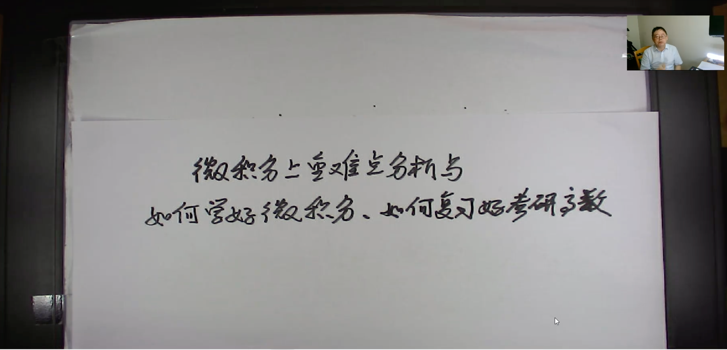 微积分上重难点分析与
如何学好微积分、如何复习好考研高数